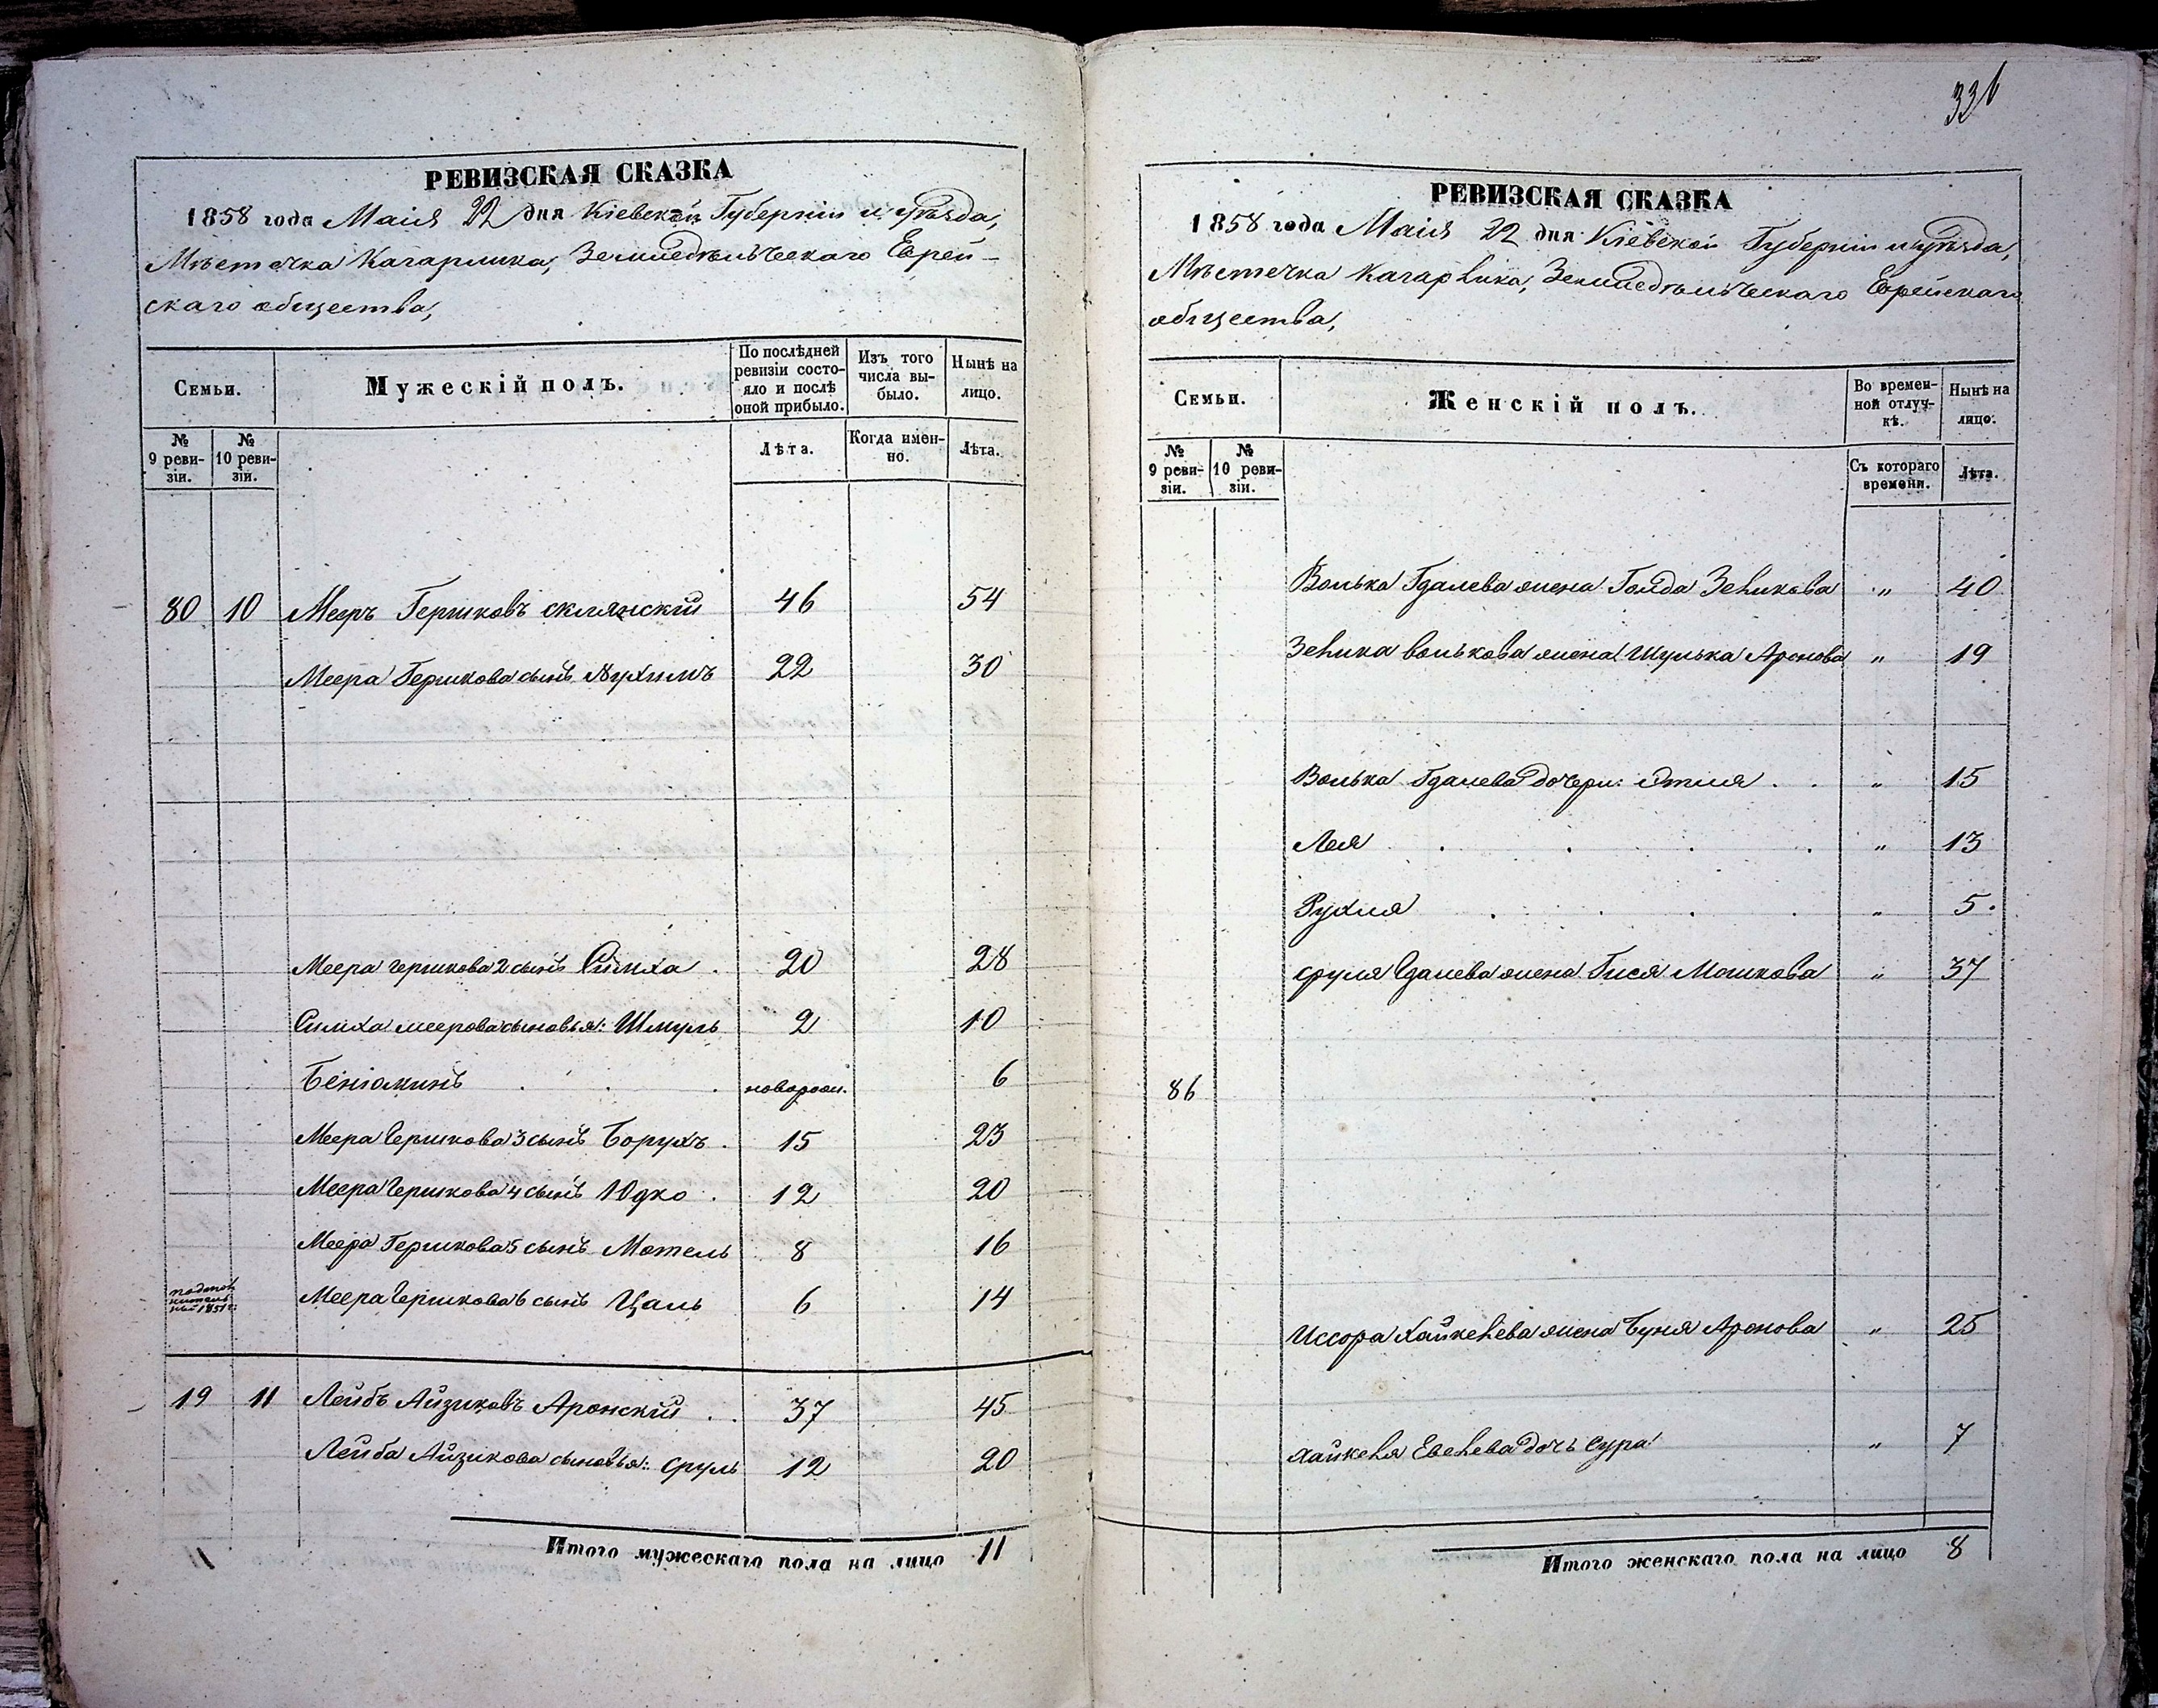 РЕВИЗСКАЯ СКАЗКА
1858 года Маія 22 дня Кіевской Губерніи и уѣзда,
Мѣстечка Кагарлика, Земледѣльческаго Еврей-
скаго общества,
Семьи.
Мужескій полъ.
По послѣдней ревизіи состо-яло и послѣ оной прибыло.
Изъ того числа вы-было.
Нынѣ на лицо.
№ 9 реви-зіи.
№ 10 реви-зіи.
Лѣта.
Когда имен-но.
Лѣта.
80 10 Мееръ Гершковъ склянскій 46 54
Меера Гершкова сынъ Нухимъ 22 30
Меера гершкова 2 сынъ Симха . 20 28
Симха меерова сыновья: Шмуль 2 10
Беніоминъ . . . новорож. 6
Меера Гершкова 3 сынъ Борухъ . 15 23
Меера Гершкова 4 сынъ Юдко . 12 20
Меера Гершкова 5 сынъ Мотель 8 16
1851 г:
Меера Гершкова 6 сынъ Цаль 6 14
19 11 Лейбъ Айзиковъ Аронскій . . 37 45
Лейба Айзикова сыновья: Сруль 12 20
Итого мужескаго пола на лицо 11
336
РЕВИЗСКАЯ СКАЗКА
1858 года Маія 22 дня Кіевской Губерніи и уѣзда,
Мѣстечка Кагарлика, Земледѣльческаго Еврейскаго
общества,
Семьи.
Женскій полъ.
Во времен-ной отлуч-кѣ.
Нынѣ на лицо.
№ 9 реви-зіи.
№ 10 реви-зіи.
Съ котораго времени.
Лѣта.
Волька Гдалева жена Голда Зеликова " 40
Зелика волькова жена Шулька Аронова " 19
Волька Гдалева дочери: Этля . . " 15
Лея . . . . " 13
Рухля . . . . " 5.
сруля Гдалева жена Гися Мошкова " 37
86
Иссора Хайкелева жена Буня Аронова " 25
Хайкеля Евелева дочь Сура " 7
Итого женскаго пола на лицо 8